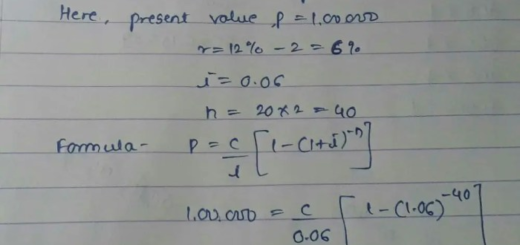 Here, present value P = 1,00,000
r = 12% - 2 = 6%
i = 0.06
n = 20 x 2 = 40
Formula - P = C/i [1 - (1+i)^-n]
1,00,000 = C/0.06 [1 - (1.06)^-40]